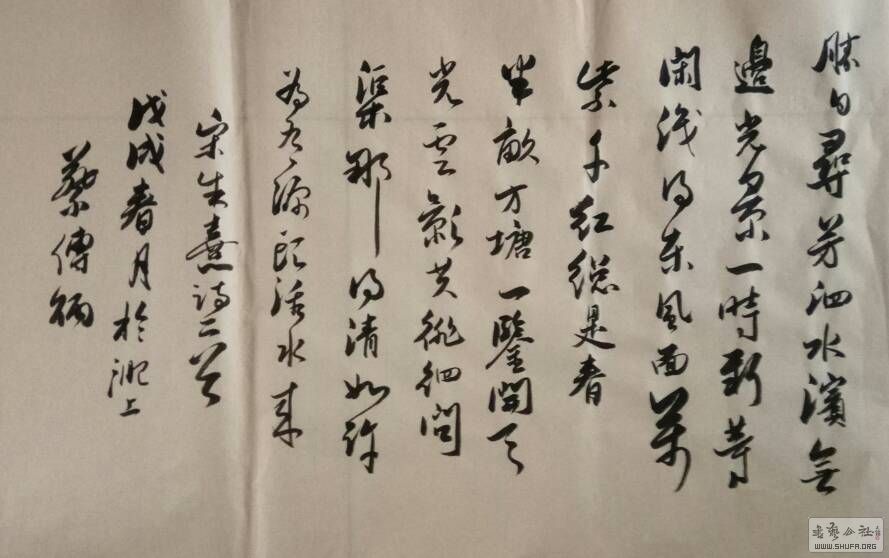 勝日尋芳泗水濱無
邊光景一時新等
閑識得東風面萬
紫千紅總是春
半畝方塘一鑒開天
光雲影共徘徊問
渠那得清如許
為有源頭活水來
宋朱熹詩二首
戊戌春月於淝上
蔡傳炳
書藝公社
WWW.SHUFA.ORG